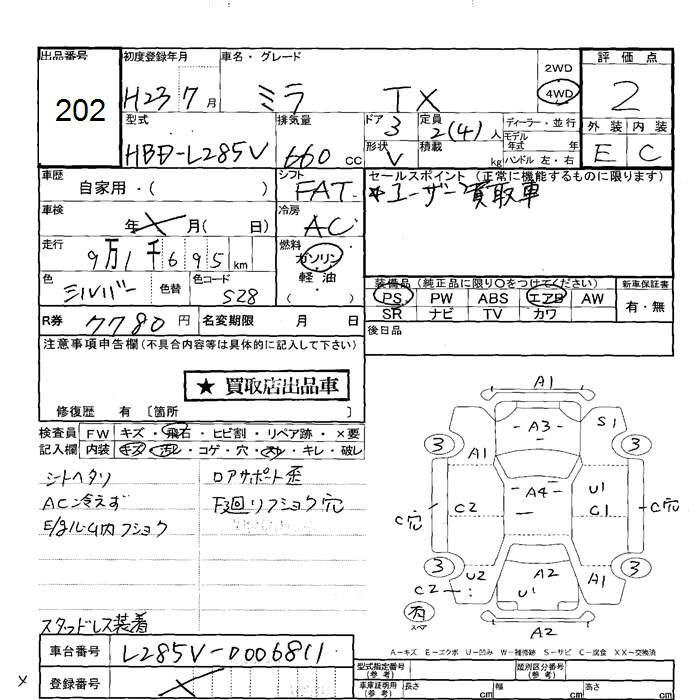 出品番号
202
初度登録年月
H23 7月
車名・グレード
ミラ TX
2WD
4WD
評価点
2
外装 内装
E C
型式
HBD-L285V
排気量
660 cc
ドア
3
形状
V
定員
2(4)人
積載
kg
ディーラー・並行
モデル年式 年
ハンドル 左・右
車歴
自家用・( )
シフト
FAT
セールスポイント (正常に機能するものに限ります)
*ユーザー買取車
車検
年 月( 日)
冷房
AC
走行
9万1千695km
燃料
ガソリン
軽油
( )
色
シルバー
色替
色コード
S28
装備品(純正品に限り○をつけてください)
PS PW ABS エアB AW
SR ナビ TV カワ
新車保証書
有・無
R券
7780円
名変期限 月 日
後日品
注意事項申告欄(不具合内容等は具体的に記入して下さい)
★買取店出品車
修復歴 有 〔箇所 〕
検査員 FW キズ・飛石・ヒビ割・リペア跡・×要
記入欄 内装 キズ・汚レ・コゲ・穴・スレ・キレ・破レ
シートヘタリ
AC冷えず
ロアサポート歪
F3回リフショク穴
スタッドレス装着
車台番号
L285V-0006811
登録番号
×
A1
A3
S1
3
3
A1
C2
A4
U1
C1
C穴
C穴
3
3
U2
C2
A2
U1
A1
有
スペア
A2
A-キズ E-エクボ U-凹み W-補修跡 S-サビ C-腐食 XX-交換済
型式指定番号
(参考)
類別区分番号
(参考)
車庫証明用
(参考)
長さ cm 幅 cm 高さ cm